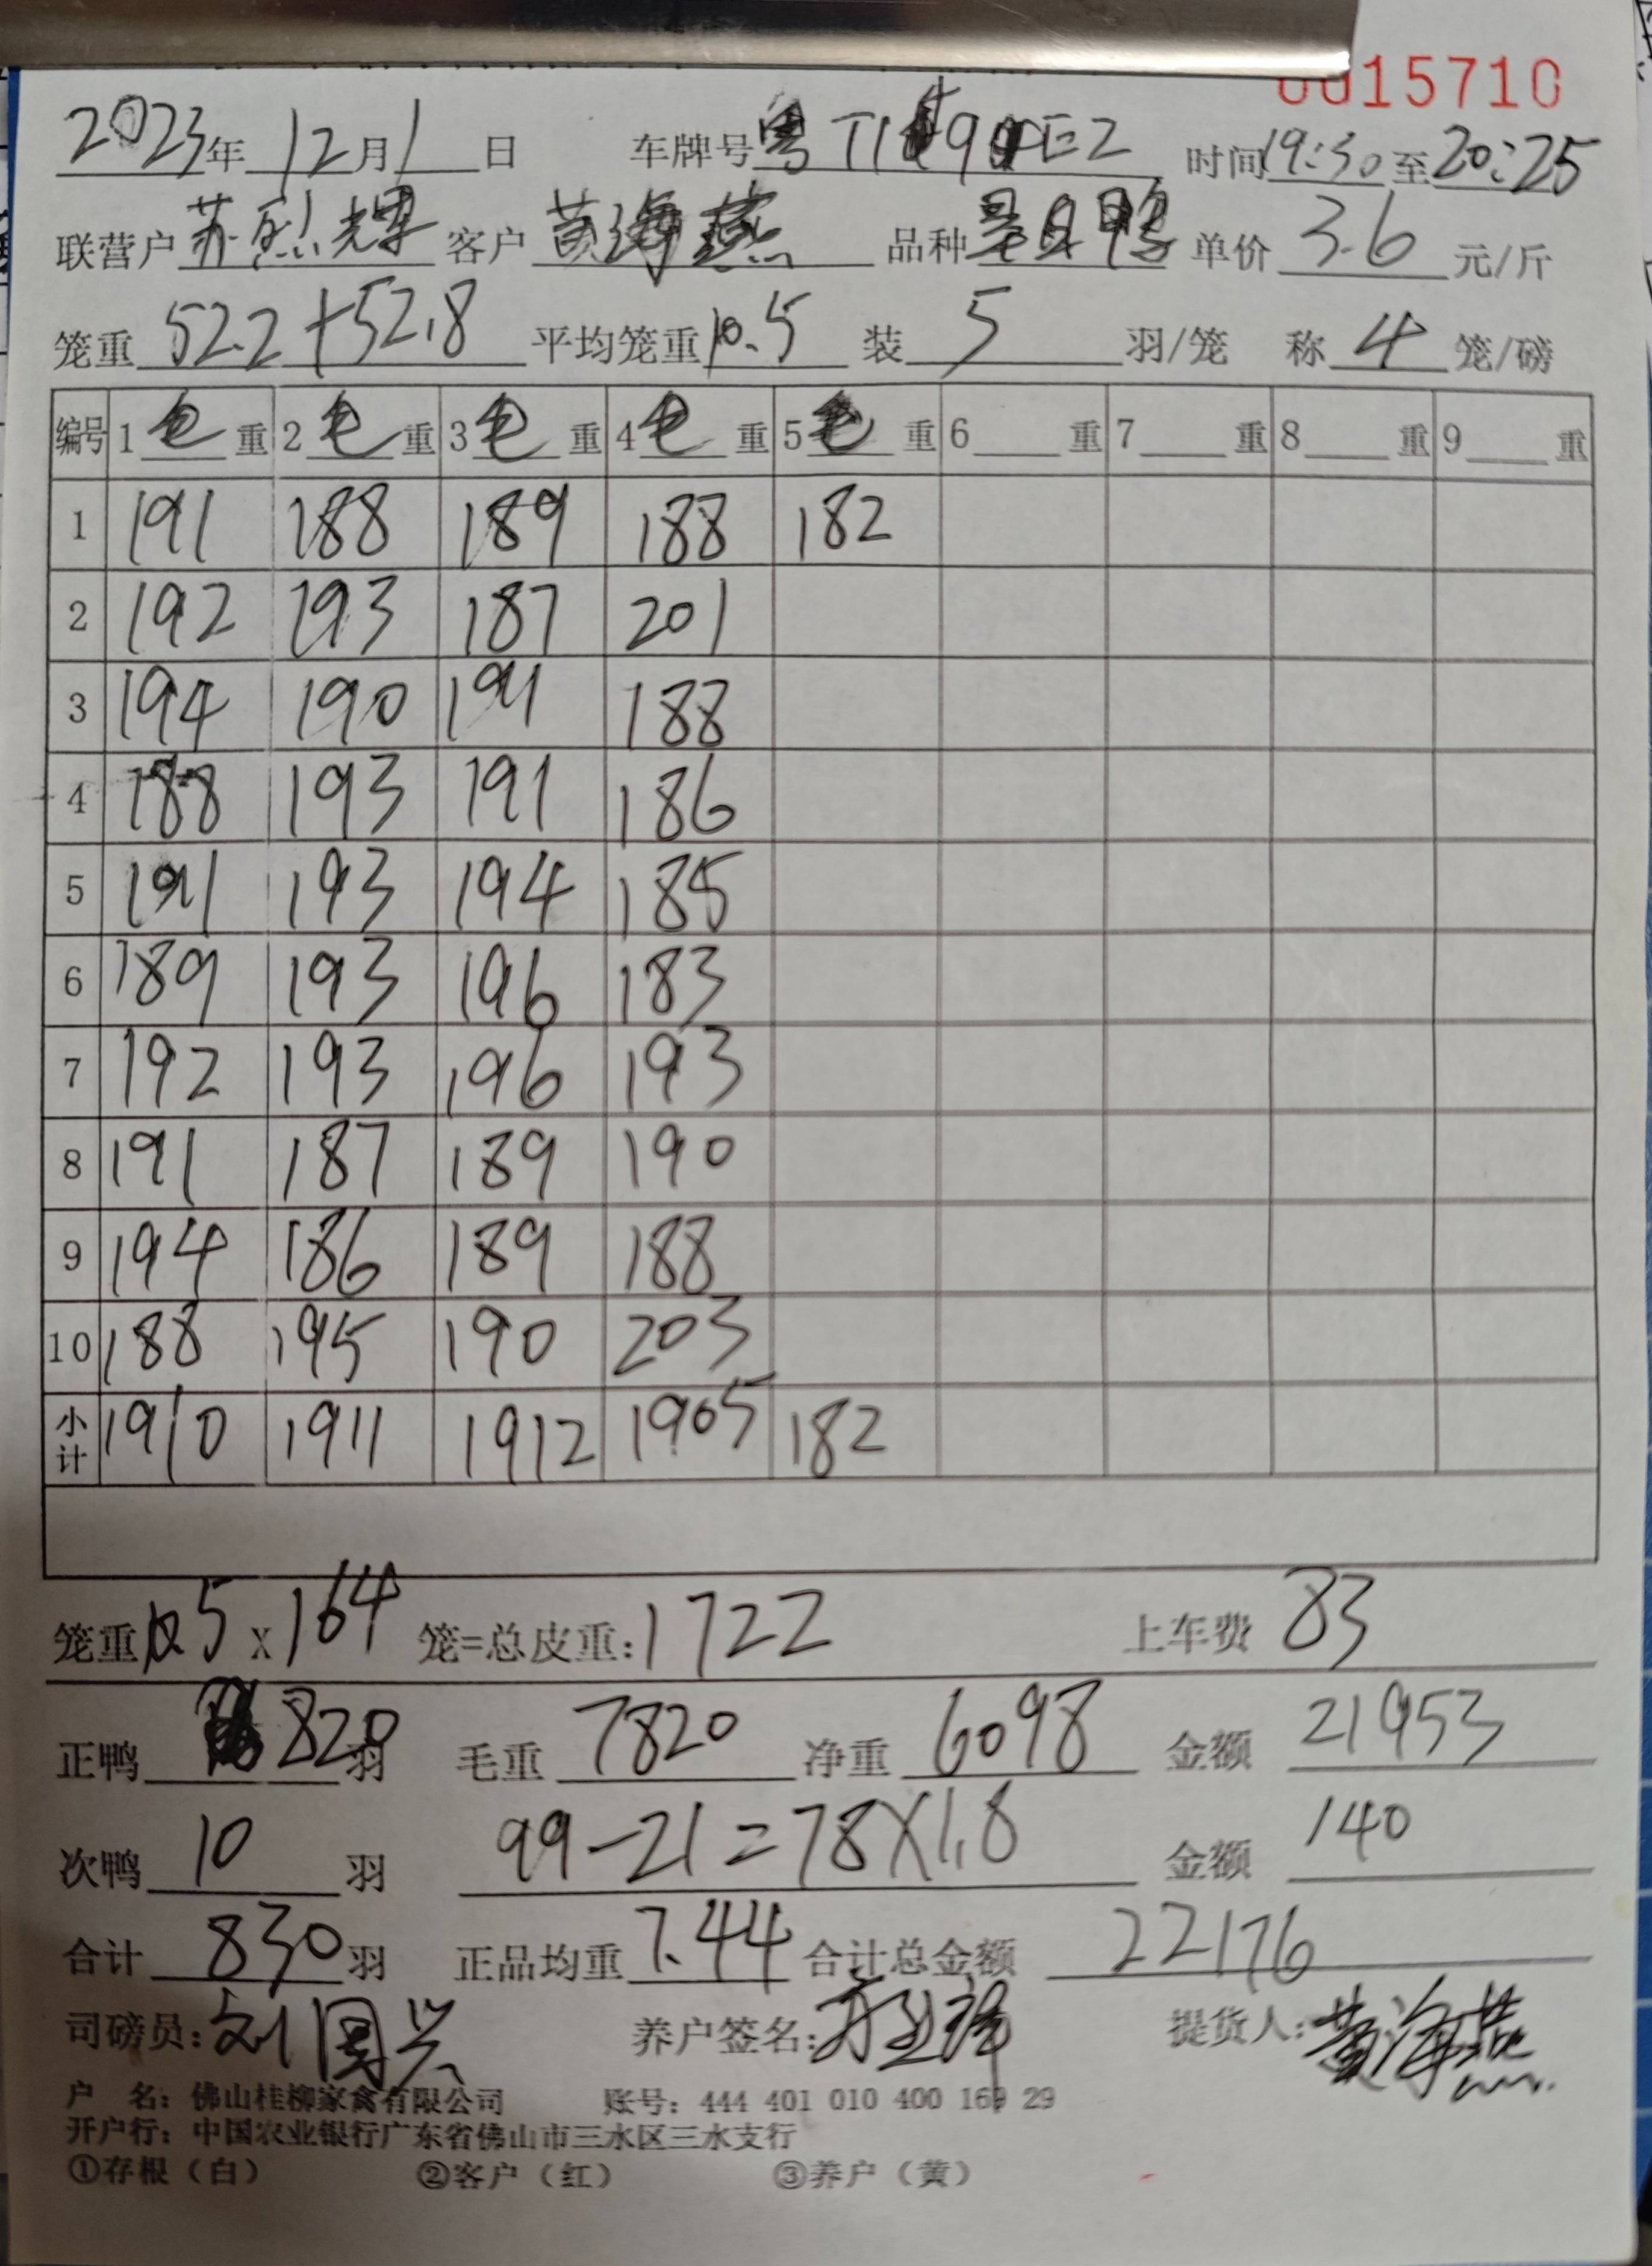 0015710
2023年 12月 1日 车牌号 粤 时间 19:30 至 20:25
联营户 苏烈辉 客户 黄海燕 品种 单价 3.6 元/斤
笼重 52.2+52.8 平均笼重 10.5 装 5 羽/笼 称 4 笼/磅
编号 1 毛 重 2 毛 重 3 毛 重 4 毛 重 5 毛 重 6 重 7 重 8 重 9 重
1 191 188 189 188 182
2 192 193 187 201
3 194 190 191 188
4 188 193 191 186
5 191 193 194 185
6 189 193 196 183
7 192 193 196 193
8 191 187 189 190
9 194 186 189 188
10 188 195 190 203
小计 1910 1911 1912 1905 182
笼重 10.5 X 164 笼=总皮重: 1722 上车费 83
正鸭 820 羽 毛重 7820 净重 6098 金额 21953
次鸭 10 羽 99-21=78X1.8 金额 140
合计 830 羽 正品均重 7.44 合计总金额 22176
司磅员: 刘国兴 养户签名: 提货人: 黄海燕
户 名: 佛山桂柳家禽有限公司 账号: 444 401 010 400 169 29
开户行: 中国农业银行广东省佛山市三水区三水支行
①存根(白) ②客户(红) ③养户(黄)